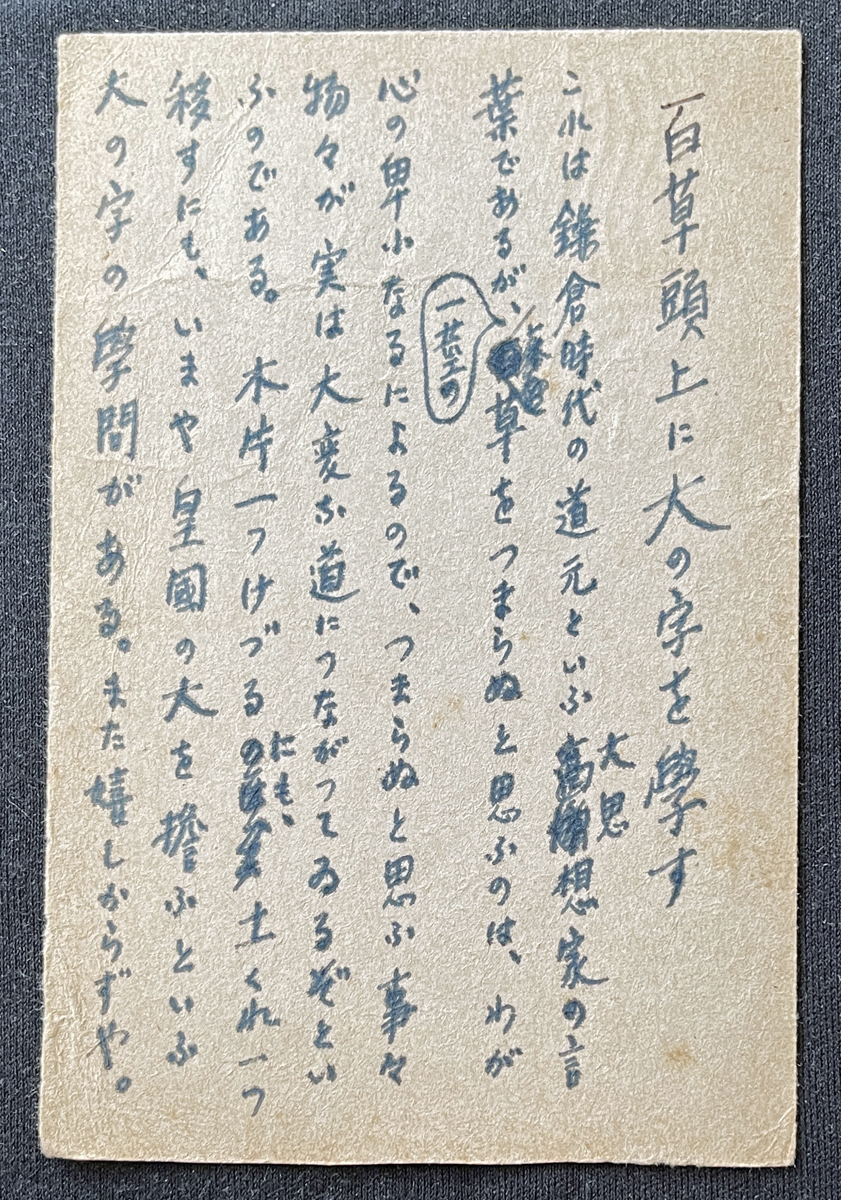 百草頭上に大の字を學す
これは鎌倉時代の道元といふ大思想家の言
葉であるが、一莖の草をつまらぬと思ふのは、わが
心の卑小なるによるので、つまらぬと思ふ事々
物々が実は大変な道につながつてゐるぞとい
ふのである。木片一つけづるにも、土くれ一つ
移すにも、いまや皇國の大を擔ふといふ
大の字の學問がある。また嬉しからずや。